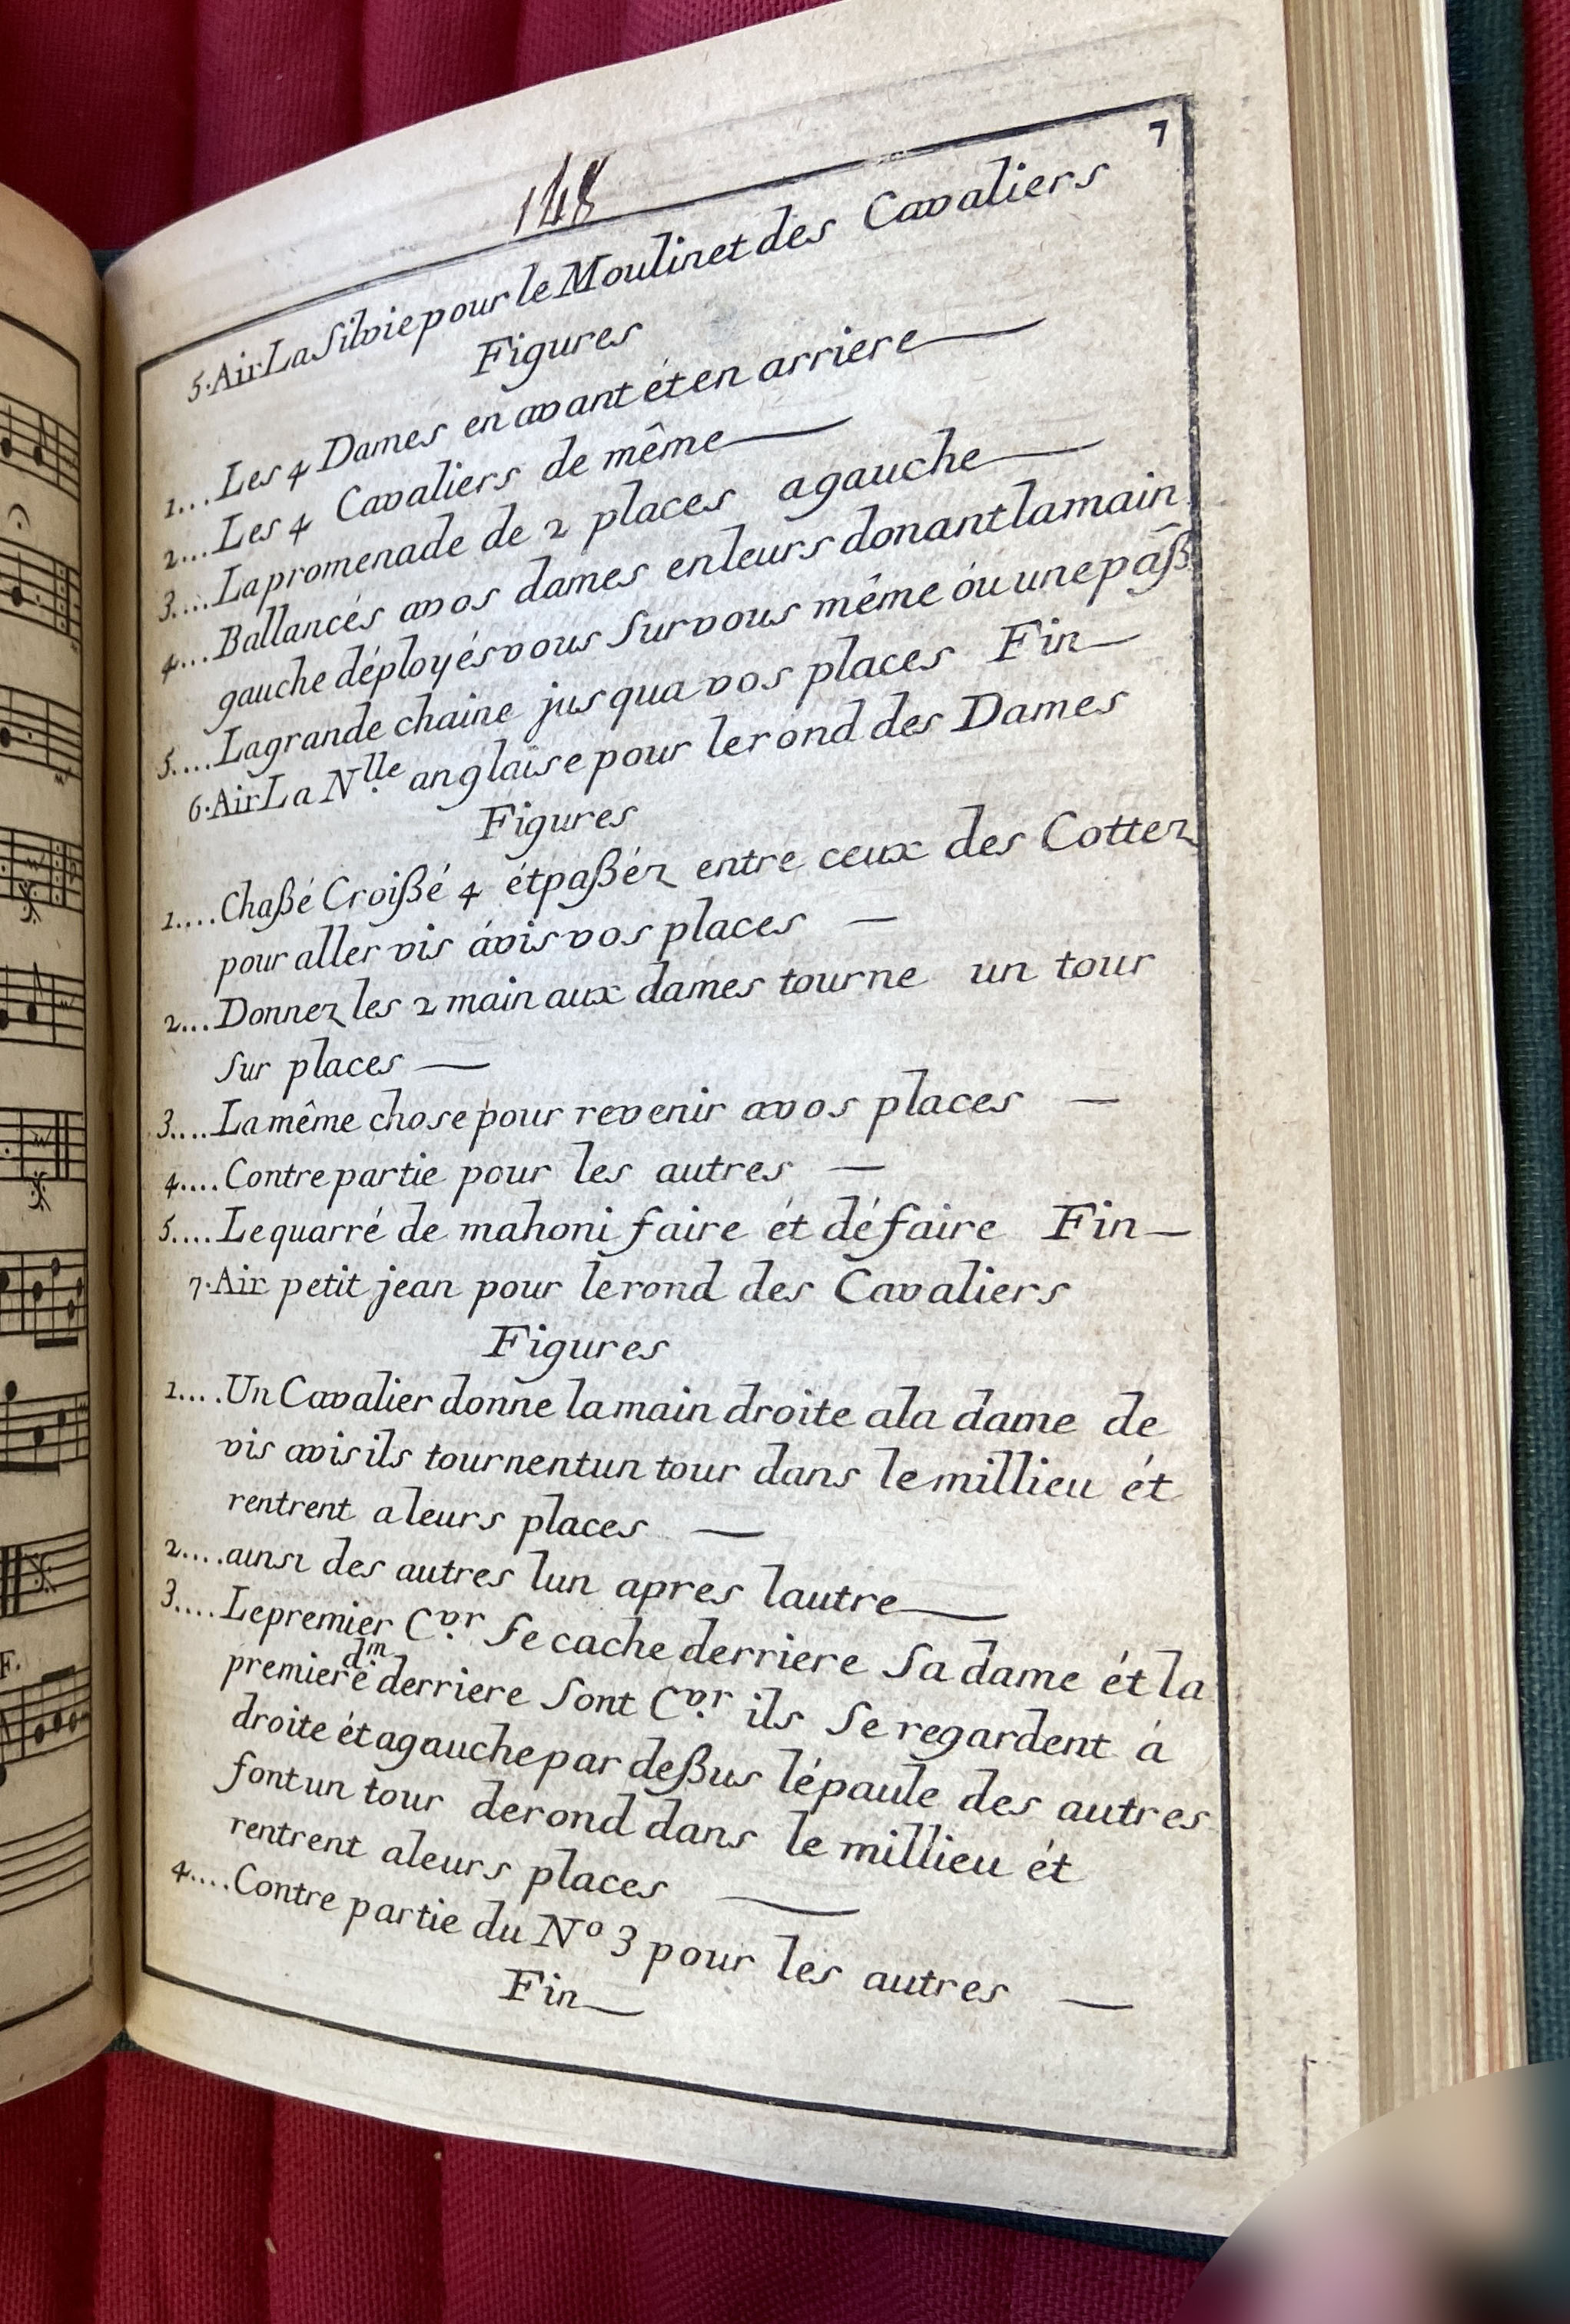 148
7
5. Air La Silvie pour le Moulinet des Cavaliers
Figures
1... Les 4 Dames en avant ét en arriere
2... Les 4 Cavaliers de même
3.... La promenade de 2 places a gauche
4... Ballancés a vos dames en leurs donant la main
gauche déployés vous Sur vous même óu une páß
5.... La grande chaine jus qua vos places Fin
6. Air La Nlle anglaise pour le rond des Dames
Figures
1.... Chaßé Croißé 4 ét paßéz entre ceux des Cottez
pour aller vis ávis vos places
2... Donnez les 2 main aux dames tourne un tour
Sur places
3.... La même chose pour revenir a vos places
4.... Contre partie pour les autres
5.... Le quarré de mahoni faire ét défaire Fin
7. Air petit jean pour le rond des Cavaliers
Figures
1.... Un Cavalier donne la main droite a la dame de
vis a vis ils tournent un tour dans le millieu ét
rentrent a leurs places
2.... ainsi des autres lun apres lautre
3.... Le premier Cvr Se cache derriere Sa dame ét la
premiere dm derriere Sont Cvr ils Se regardent á
droite ét a gauche par deßus lépaule des autres
font un tour de rond dans le millieu ét
rentrent a leurs places
4.... Contre partie du No 3 pour les autres
Fin
F.